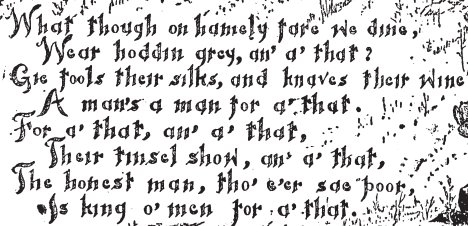 What though on hamely fare we dine,
Wear hoddin grey, an' a' that?
Gie fools their silks, and knaves their wine
A man's a man for a' that.
For a' that, an' a' that,
Their tinsel show, an' a' that,
The honest man, tho' e'er sae poor,
Is king o' men for a' that.